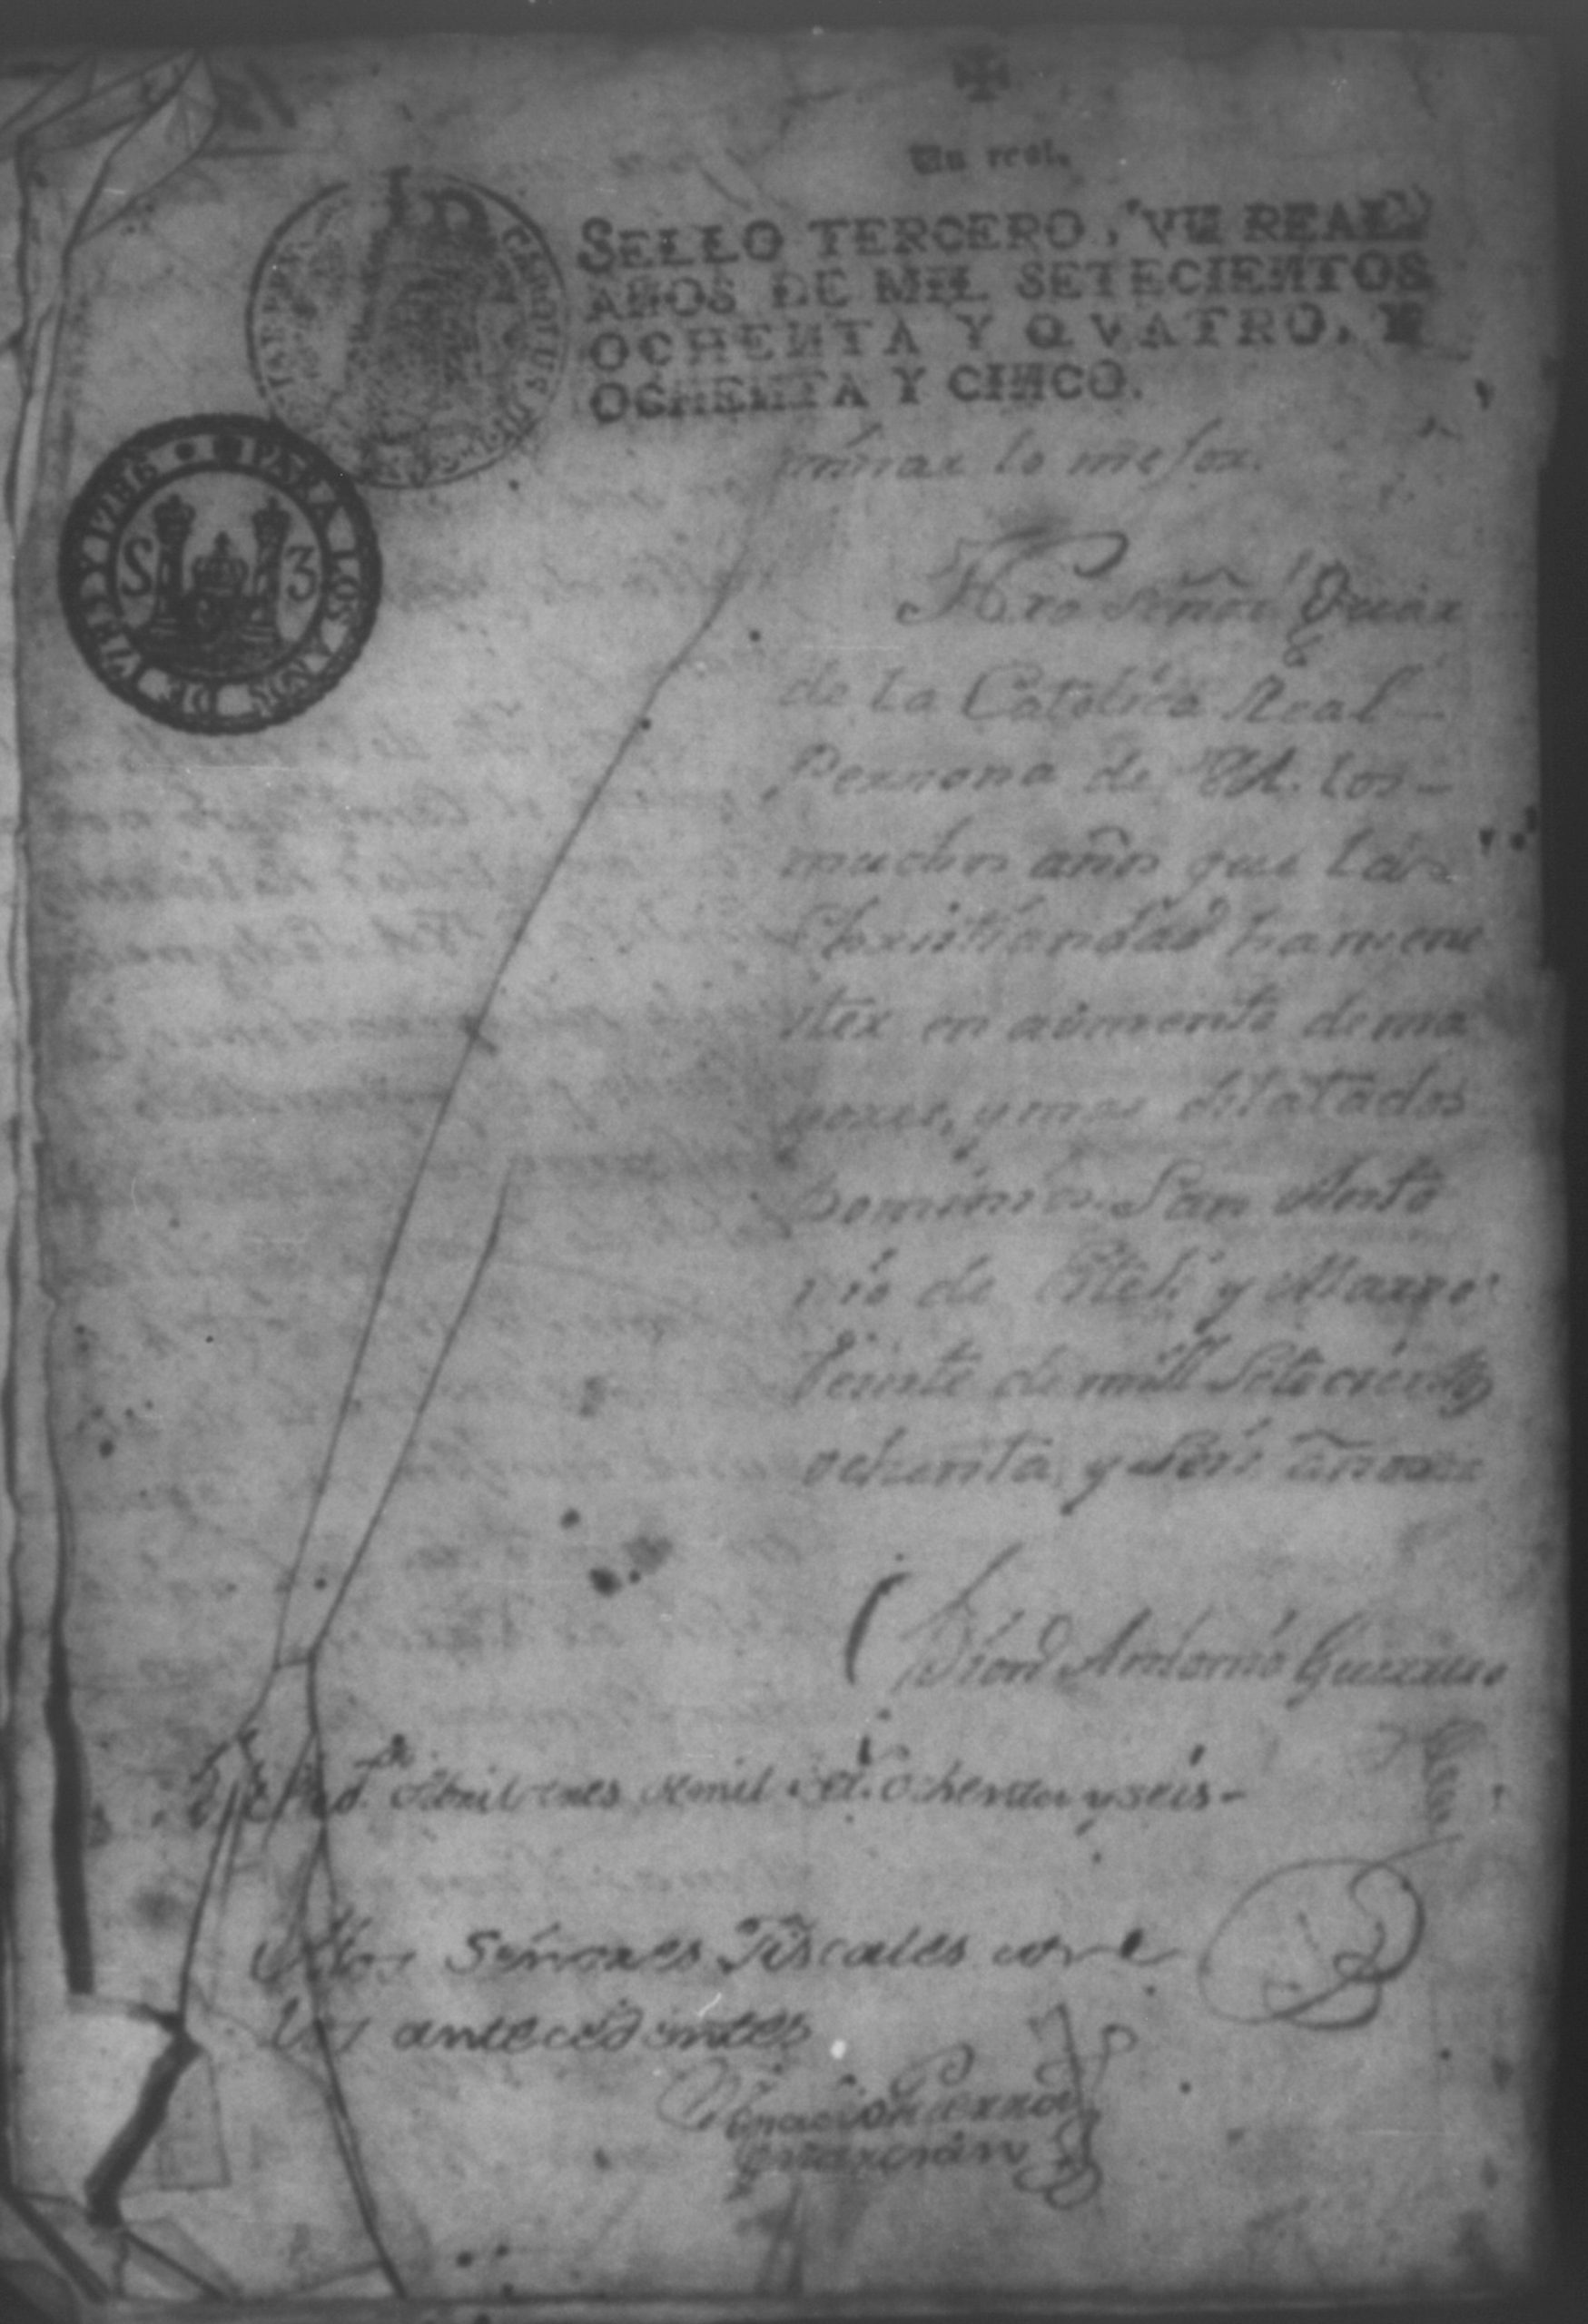 Un real.
SELLO TERCERO, VN REAL,
AÑOS DE MIL SETECIENTOS
OCHENTA Y QVATRO, Y
OCHENTA Y CINCO.
PARA LOS AÑOS DE 1785 Y 1786
S 3
minar lo mejor.
Nro Señor Guàr
de la Catolica Real
Perzona de VA. los
muchos años que la
Christiandad ha mene
ster en aumento de ma
yores, y mas dilatados
Dominios. San Anto
nio de y Marzo
veinte de mill Setecientos
ochenta, y Seis años
Antonio
Abril tres de mil Set. ochenta y seis
A los Señores Fiscales con
los antecedentes
Ygnacio Guerra
Marchan